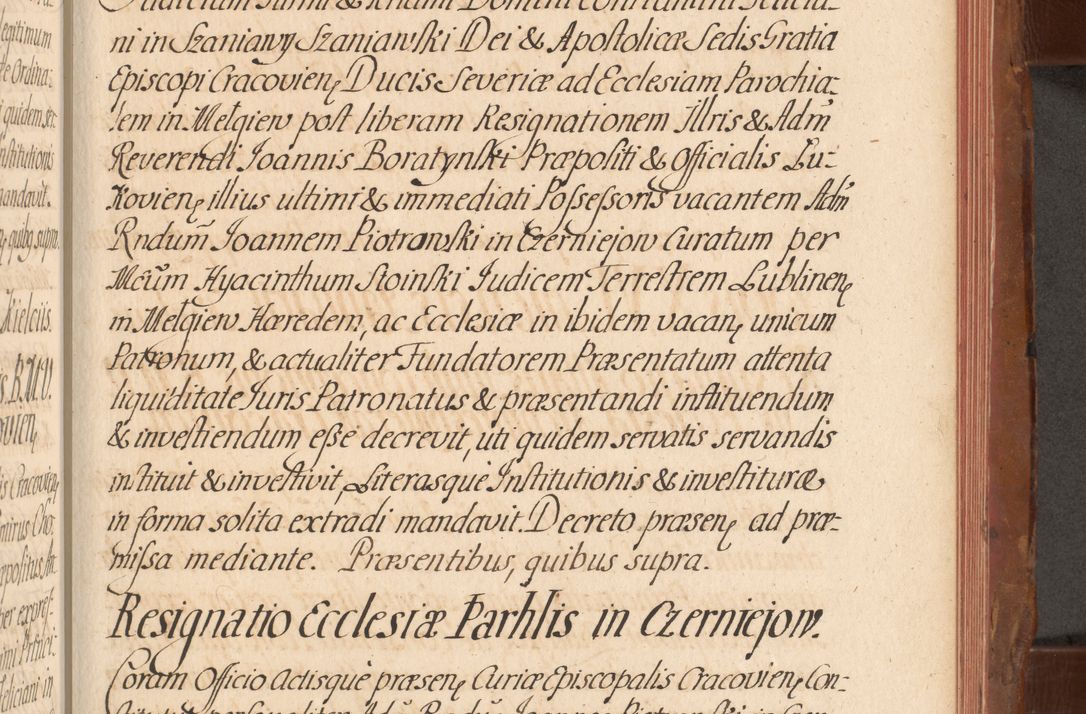 ni in Szaniawy Szaniawski Dei & Apostolicæ Sedis Gratia
Episcopi Cracovien, Ducis Severiæ ad Ecclesiam Parochia-
lem in Mełgiew post liberam Resignationem Illris & Adm̃
Reverendi Joannis Boratynski Præpositi & Officialis Lu-
kovien, illius ultimi & immediati Possessoris vacantem Adm̃
Rndum̃ Joannem Piotrowski in Czerniejow Curatum per
Mcum̃ Hyacinthum Stoinski Judicem Terrestrem Lublinen,
in Mełgiew Hæredem, ac Ecclesiæ in ibidem vacan, unicum
Patronum, & actualiter Fundatorem Præsentatum attenta
liquiditate Juris Patronatus & præsentandi instituendum
& investiendum esse decrevit, uti quidem servatis servandis
instituit & investivit, Literasque Institutionis & investituræ
in forma solita extradi mandavit. Decreto præsen, ad præ-
missa mediante. Præsentibus, quibus supra.
Resignatio Ecclesiæ Parhlis in Czerniejow.
Coram Officio Actisque præsen, Curiæ Episcopalis Cracovien, Con-
legitimum
te Ordina-
quidem ser-
nstitutionis
mandavit.
quibq supra.
Kielciis.
B.M.V.